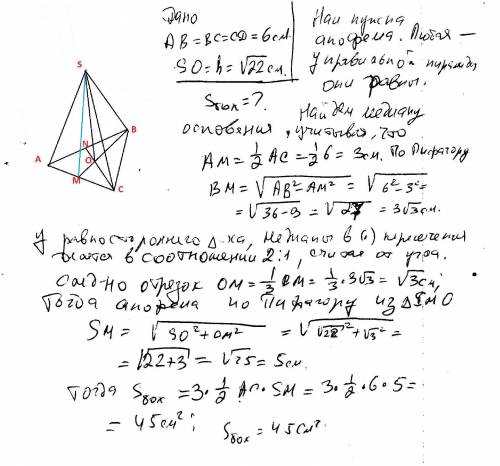 Дано
AB=BC=CD=6см
SO=h=√22см.
Sбок=?
Нам нужна
апофема. Любая —
у правильной пирамиды
они равны.
Найдём медиану
основания, учитывая, что
AM=½AC=½6=3см. По Пифагору
BM=√AB²-AM²=√6²-3²=
=√36-9=√27=3√3см.
S
N
B
A
O
M
C
У равностороннего Δ-ка, медианы в (·) пересечения
делятся в соотношении 2:1, считая от угла.
След-но отрезок OM=⅓BM=⅓·3√3=√3см;
Тогда апофема по Пифагору из ΔSMO
SM=√SO²+OM²=√√22²+√3²=
=√22+3=√25=5см.
Тогда Sбок=3·½·AC·SM=3·½·6·5=
=45см²; Sбок=45см².